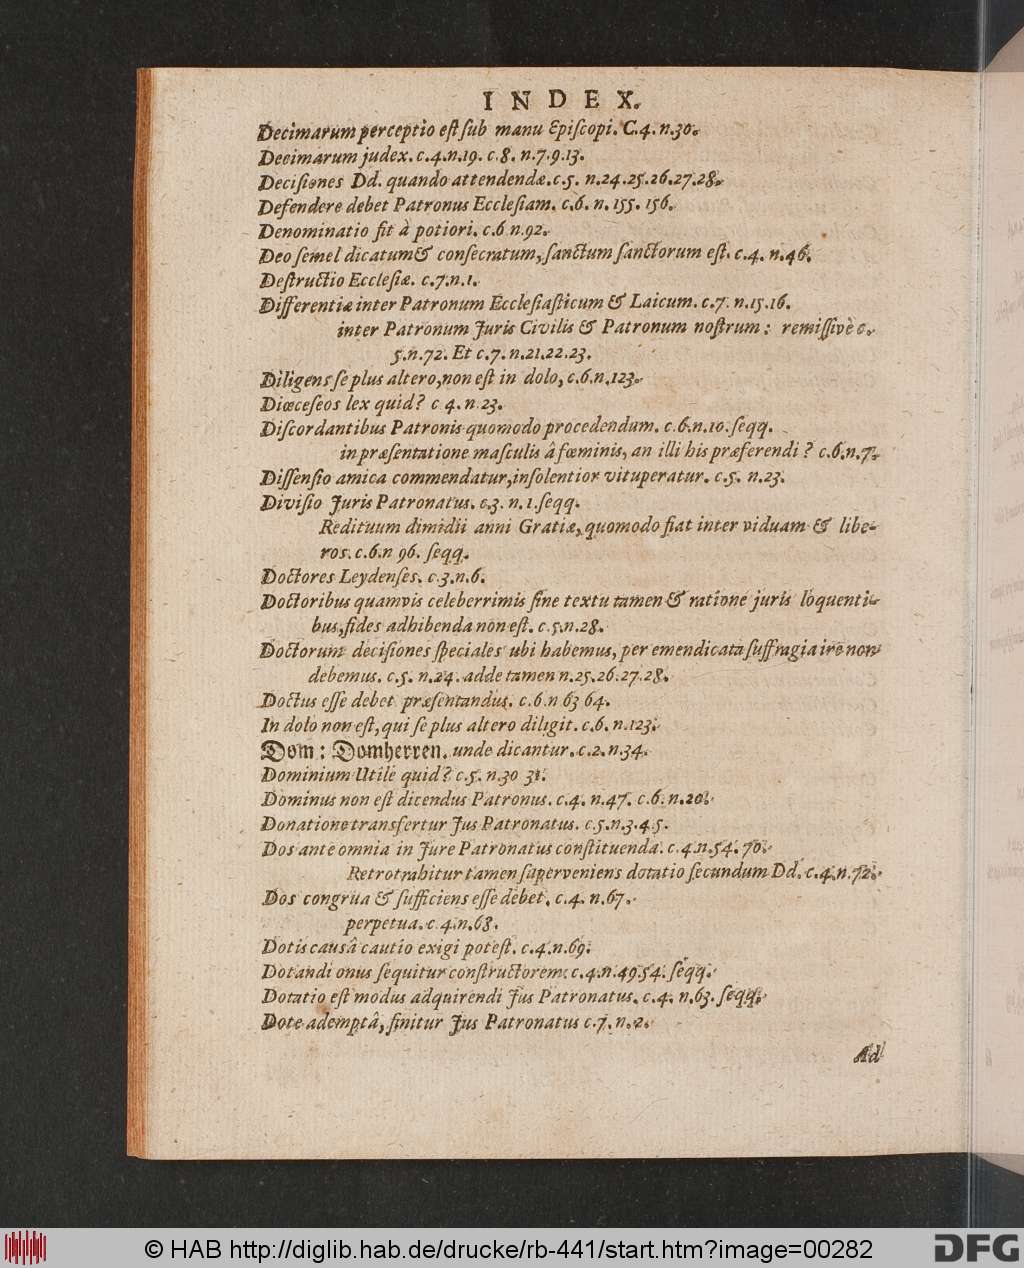 INDEX.
Decimarum perceptio est sub manu Episcopi. C.4.n.30.
Decimarum judex. c.4.n.19. c.8. n.7.9.13.
Decisiones Dd. quando attendendæ.c.5. n.24.25.26.27.28.
Defendere debet Patronus Ecclesiam. c.6. n. 155. 156.
Denominatio fit à potiori. c.6 n.92.
Deo semel dicatum& consecratum, sanctum sanctorum est. c.4. n.46.
Destructio Ecclesiæ. c.7.n.1.
Differentiæ inter Patronum Ecclesiasticum & Laicum. c.7. n.15.16.
inter Patronum Juris Civilis & Patronum nostrum: remissivè c.
5.n.72. Et c.7. n.21.22.23.
Diligens se plus altero, non est in dolo, c.6.n.123.
Diœceseos lex quid? c 4. n.23.
Discordantibus Patronis quomodo procedendum. c.6.n.10.seqq.
in præsentatione masculis â fœminis, an illi his præferendi? c.6.n.7.
Dissensio amica commendatur, insolentior vituperatur. c.5. n.23.
Divisio Juris Patronatus. c.3. n.1.seqq.
Redituum dimidii anni Gratiæ, quomodo fiat inter viduam & libe-
ros. c.6.n 96. seqq.
Doctores Leydenses. c.3.n.6.
Doctoribus quamvis celeberrimis sine textu tamen & ratione juris loquenti-
bus, fides adhibenda non est. c.5.n.28.
Doctorum decisiones speciales ubi habemus, per emendicata suffragia ire non
debemus. c.5. n.24. adde tamen n.25.26.27.28.
Doctus esse debet præsentandus. c.6.n 63 64.
In dolo non est, qui se plus altero diligit. c.6. n.123.
Dom: Domherren. unde dicantur. c.2.n.34.
Dominium Utile quid? c.5. n.30 31.
Dominus non est dicendus Patronus. c.4. n.47. c.6. n.20.
Donatione transfertur Jus Patronatus. c.5.n.3.4.5.
Dos ante omnia in Jure Patronatus constituenda. c.4.n.54. 70.
Retrotrahitur tamen superveniens dotatio secundum Dd. c.4.n.72.
Dos congrua & sufficiens esse debet. c.4. n.67.
perpetua. c.4.n.68.
Dotis causâ cautio exigi potest. c.4.n.69.
Dotandi onus sequitur constructorem. c.4.n.49.54. seqq.
Dotatio est modus adquirendi Jus Patronatus. c.4. n.63. seqq.
Dote ademptâ, finitur Jus Patronatus c.7. n.2.
Ad
© HAB http://diglib.hab.de/drucke/rb-441/start.htm?image=00282
DFG